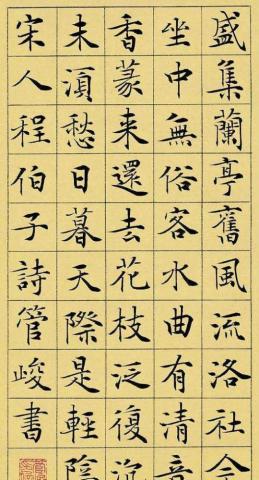 盛集蘭亭舊風流洛社今
坐中無俗客水曲有清音
香篆来還去花枝泛復沉
未湏愁日暮天際是輕陰
宋人程伯子詩管峻書